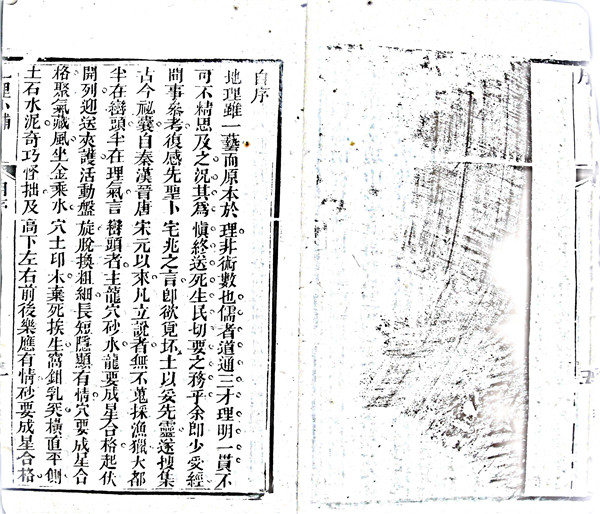 序
自序
地理雖一藝而原本於理非術數也儒者道通三才理明一貫不
可不精思及之況其為慎終送死生民切要之務乎余即少受經
問事參考復感先聖卜宅兆之言即欲覓坏土以妥先靈遂搜集
古今祕囊自秦漢晉唐宋元以來凡立說者無不蒐採漁獵大都
半在巒頭半在理氣言巒頭者主龍穴砂水龍要成星合格起伏
開列迎送夾護活動盤旋脫換粗細長短隱顯有情穴要成星合
格聚氣藏風坐金乘水穴土印木棄死挨生窩鉗乳突橫直平側
土石水泥奇巧怪拙及高下左右前後樂應有情砂要成星合格
自序